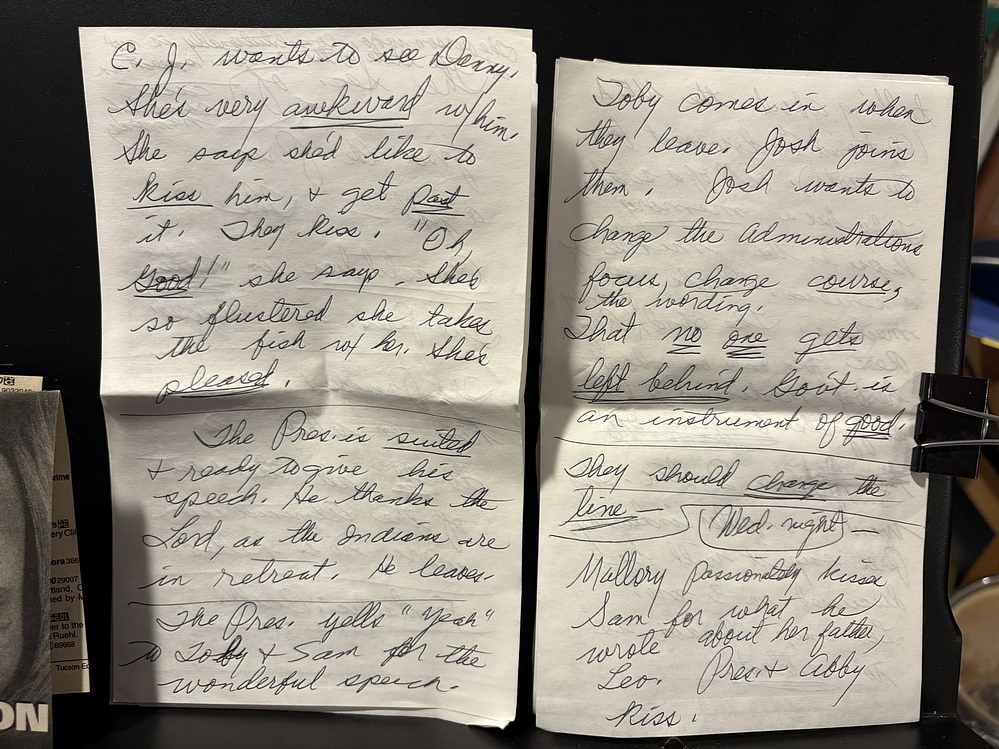 C. J. wants to see Danny.
She's very awkward w/ him.
She says she'd like to
kiss him, + get past
it. They kiss. "Oh,
Good!" she says. She's
so flustered she takes
the fish w/ her. She's
pleased.
The Pres. is suited
+ ready to give his
speech. He thanks the
Lord, as the Indians are
in retreat. He leaves.
The Pres. yells "Yeah"
to Toby + Sam for the
wonderful speech.
Toby comes in when
they leave. Josh joins
them. Josh wants to
change the administrations
focus, change course,
the wording.
That no one gets
left behind. Gov't is
an instrument of good.
They should change the
line – Wed. night –
Mallory passionately kisses
Sam for what he
wrote about her father,
Leo. Pres + Abby
kiss.
ON
Tucson
89668
Ruehl.
29007